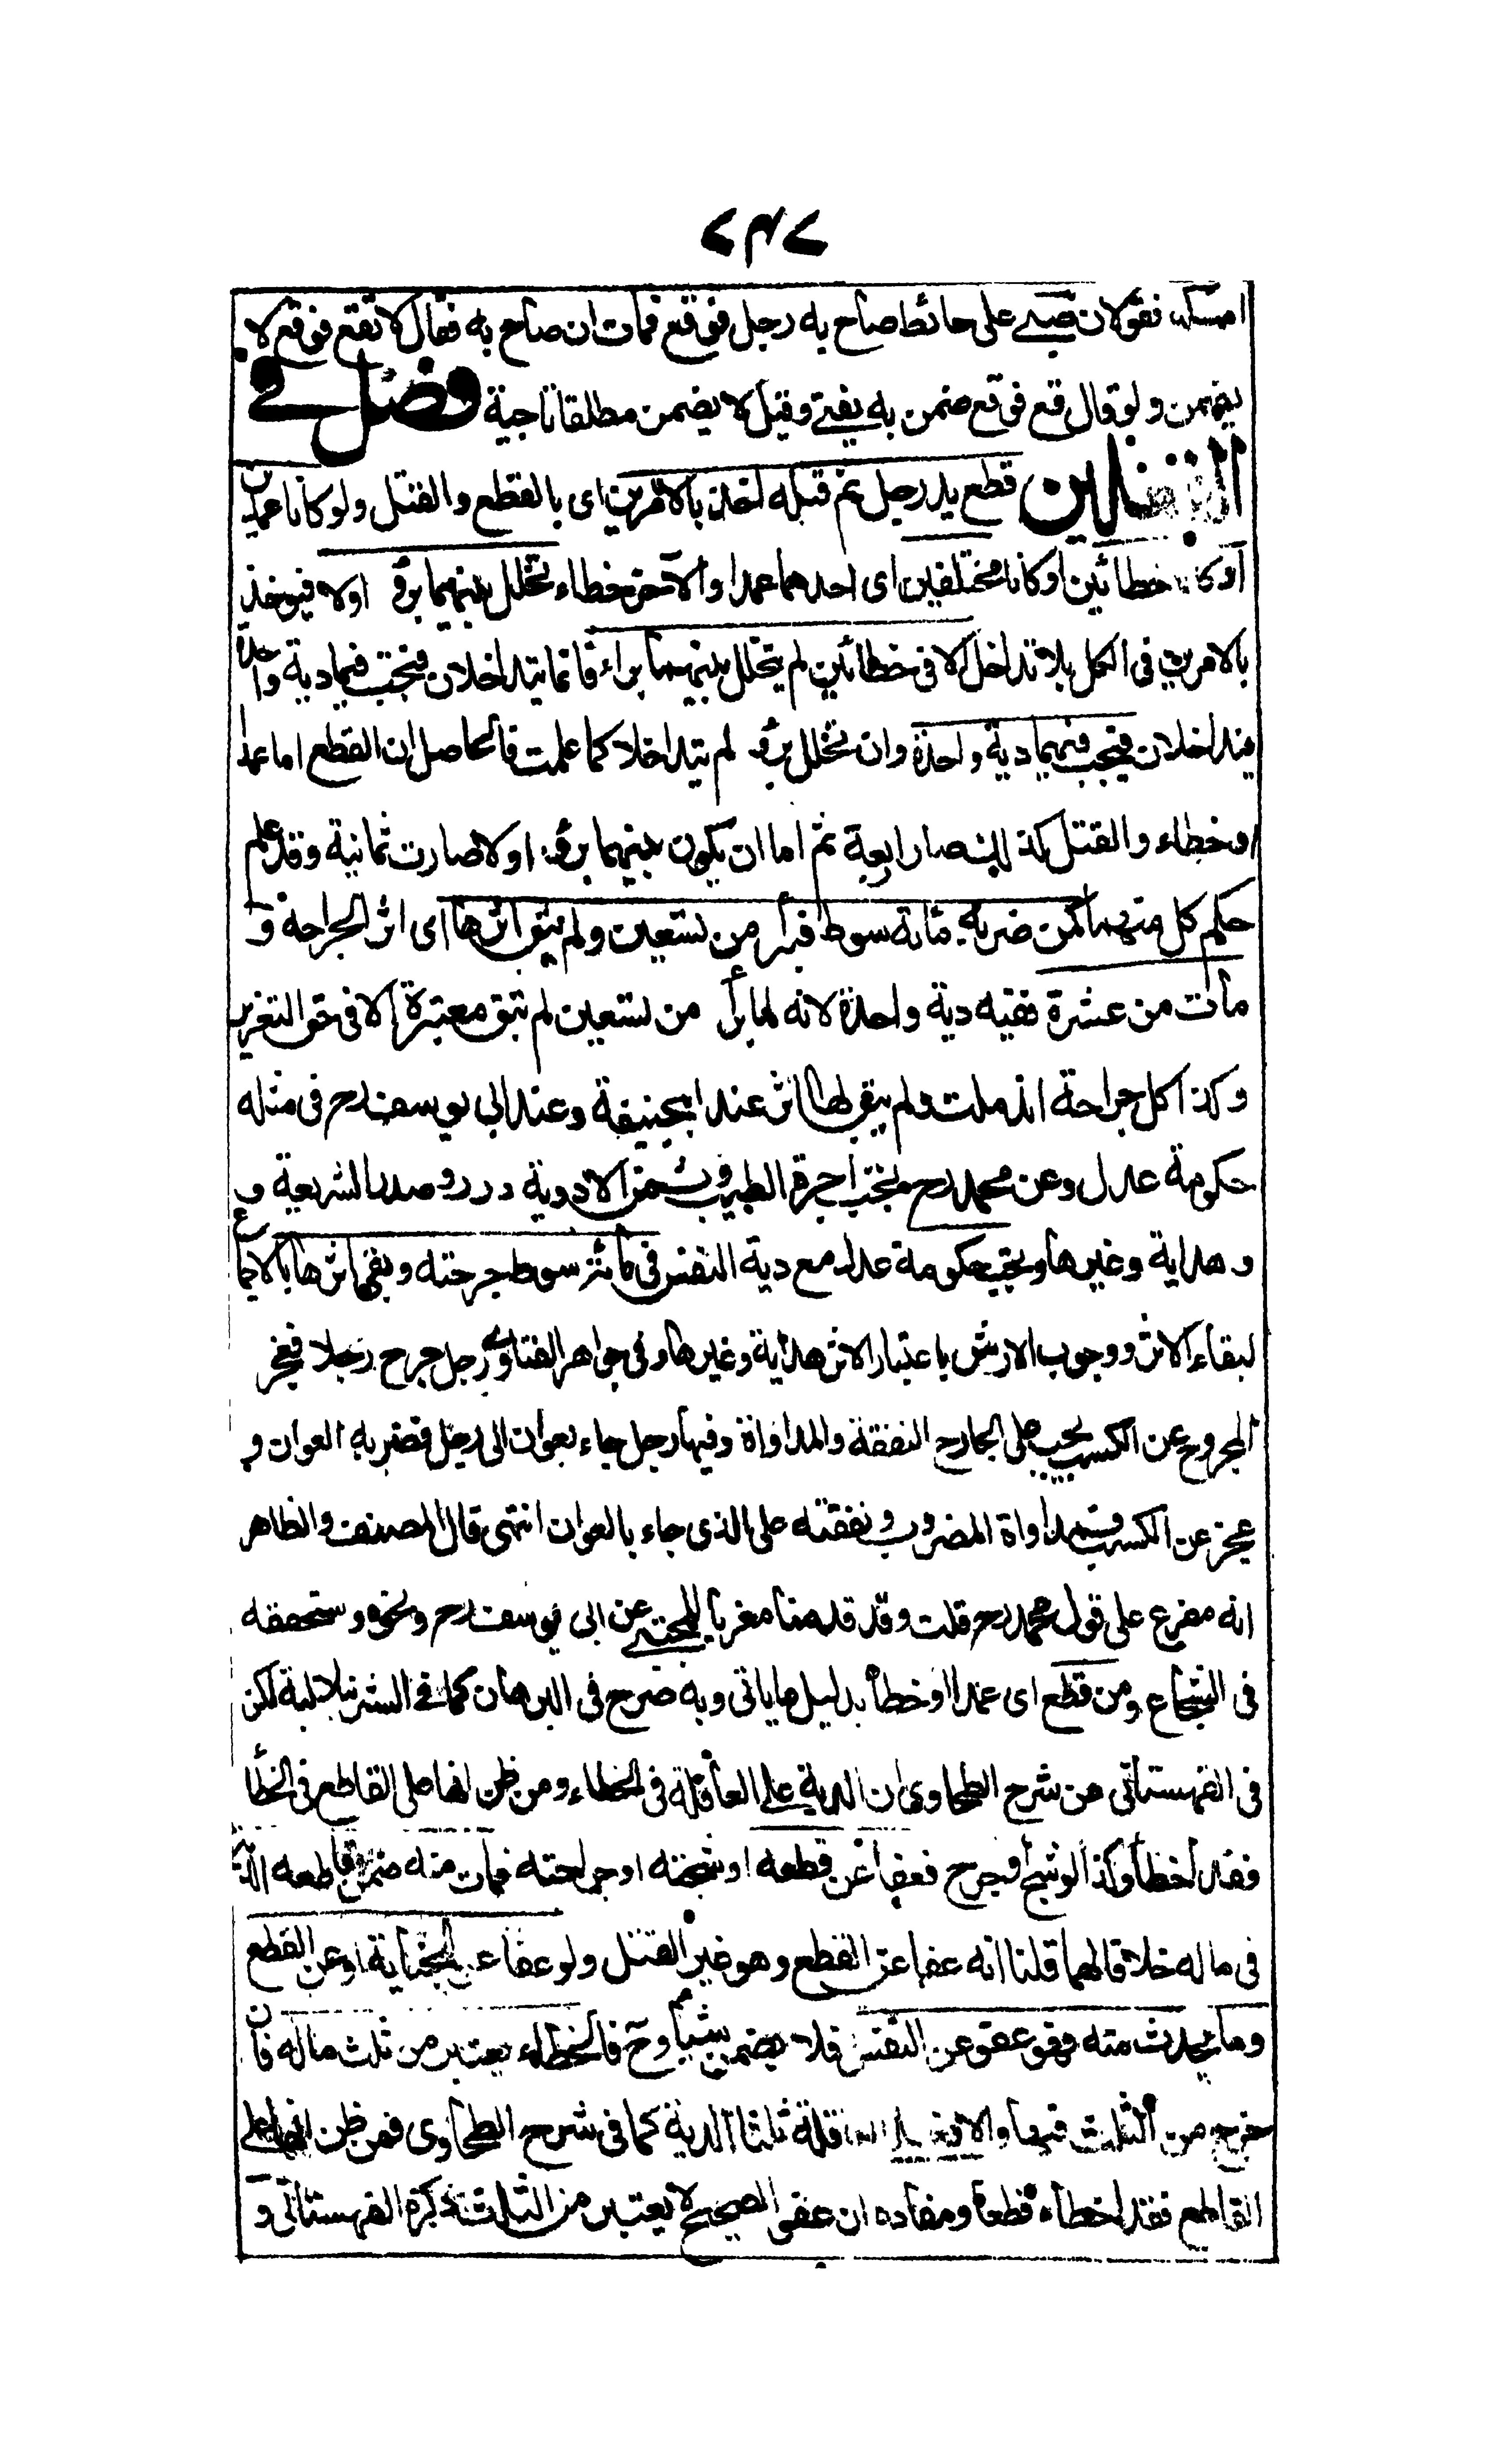 ٧٣٧
امسك فقولان صبي على حائط صاح به رجل فوقع فمات ان صاح به فقال لا تقع فوقع لا
يضمن ولو قال قع فوقع ضمن به يفتى وقيل لا يضمن مطلقا تاجية فصل في
الفعلين قطع يد رجل ثم قتله اخذ بالامرين اى بالقطع والقتل ولو كانا عمدين
او كانا خطائين او كانا مختلفين اى احدهما عمدا والآخر خطاء تخلل بينهما برؤ اولا فيوخذ
بالامرين فى الكل بلا تداخل الا فى خطائين لم يتخلل بينهما براء فانما يتداخلان فيجب فيهما دية واحدة
فيتداخلان فيجب فيهما دية واحدة وان تخلل برؤ لم يتداخلا كما علمت فالحاصل ان القطع اما عمدا
او خطاء والقتل كذلك صار اربعة ثم اما ان يكون بينهما برؤ اولا صارت ثمانية وقد علم
حكم كل منهما كمن ضربه مائة سوط فبرأ من تسعين ولم يبق اثرها اى اثر الجراحة و
مات من عشرة ففيه دية واحدة لانه لما برأ من تسعين لم تبق معتبرة الا فى حق التعزير
وكذا كل جراحة اندملت ولم يبق لها اثر عند ابيحنيفة وعند ابى يوسف رح فى مثله
حكومة عدل وعن محمد رح يجب اجرة الطبيب وثمن الادوية درر وصدر الشريعة و
و هداية وغيرها وتجب حكومة عدل مع دية النفس فى مائة سوط جرحته وبقى اثرها بالاجماع
لبقاء الاثر ووجوب الارش باعتبار الاثر هداية وغيرها وفى جواهر الفتاوى رجل جرح رجلا فعجز
المجروح عن الكسب يجب على الجارح النفقة والمداواة وفيها رجل جاء بعوان الى رجل فضربه العوان و
عجز عن الكسب فمداواة المضروب ونفقته على الذى جاء بالعوان انتهى قال المصنف والظاهر
انه مفرع على قول محمد رح قلت وقد قدمنا معزيا للمجتبى عن ابى يوسف رح ونحوه وسنحققه
فى الشجاج ومن قطع اى عمدا او خطأ بدليل ما ياتى وبه صرح فى البرهان كما فى الشرنبلالية لكن
فى القهستانى عن شرح الطحاوى ان الدية على العاقلة فى الخطاء ومن ظن انها على القاطع فى الخطأ
فقد اخطأ وكذا لو شج او جرح فعفا عن قطعه او شجته او جراحته فمات منه ضمن قاطعه الدية
فى ماله خلافا لهما قلنا انه عفا عن القطع وهو غير القتل ولو عفا عن الجناية او عن القطع
وما يحدث منه فهو عفو عن النفس فلا يضمن شيأ وح فالخطاء يعتبر من ثلث ماله فان
خرج من الثلث فبها والا فعلى العاقلة ثلثا الدية كما فى شرح الطحاوى فمن ظن انها على
القاطع فقد اخطأ قطعا ومفاده ان عفو الصحيح لا يعتبر من الثلث ذكره القهستانى و